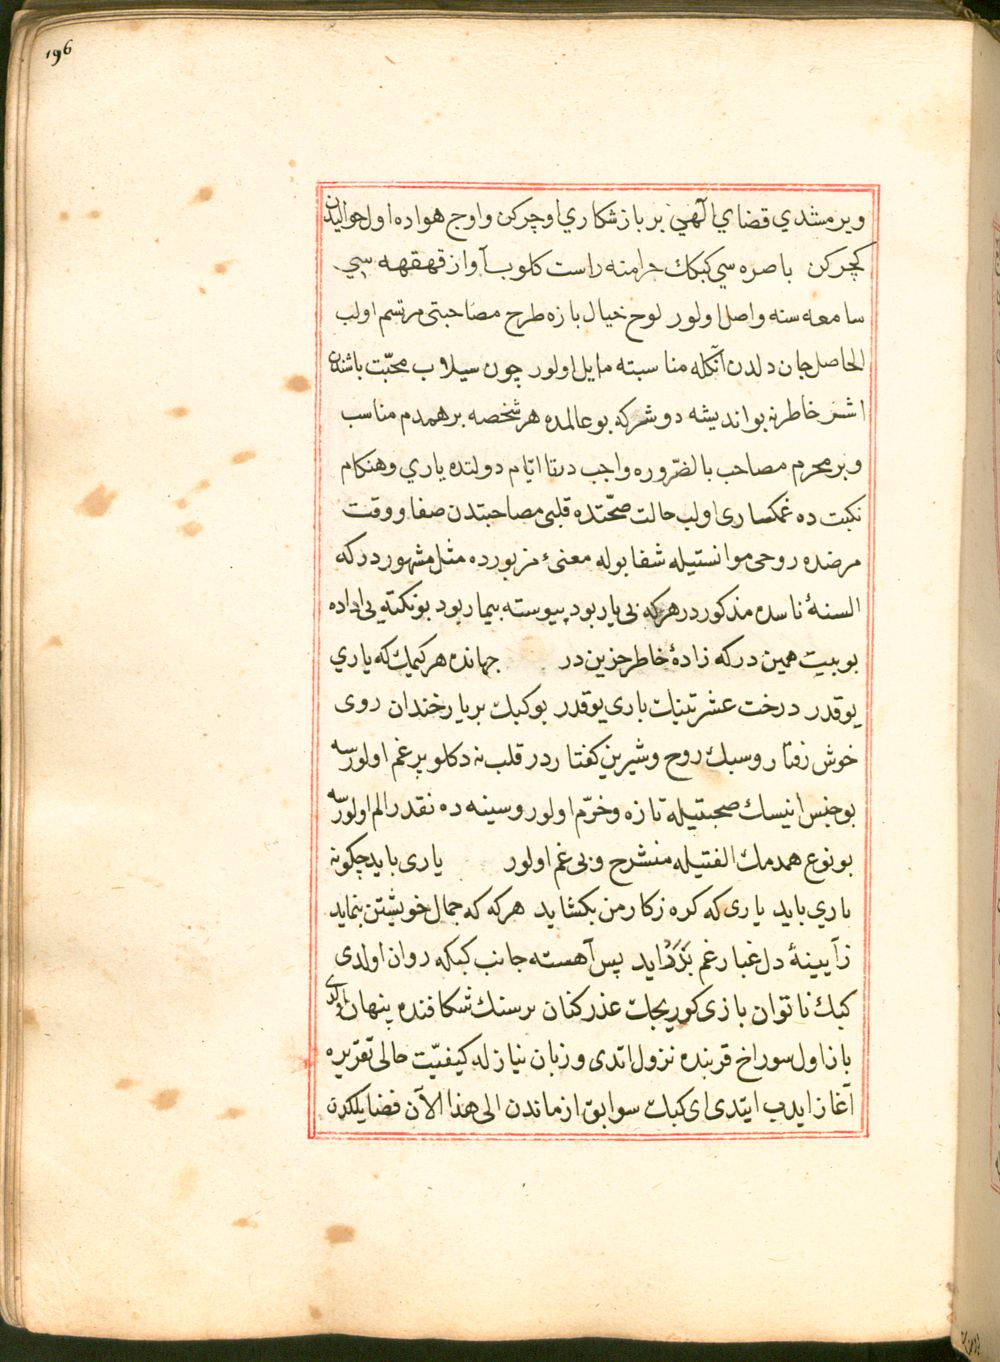 ١٩٦
ويرمشدي قضاي الهي بر باز شكاري اوچركن واوج هواده اول حواليدن
كچركن باصره سي كبكك خرامنه راست كلوب آواز قهقهه سي
سامعه سنه واصل اولور لوح خيال بازه طرح مصاحبتى مرتسم اولب
الحاصل جان دلدن آنكله مناسبته مايل اولور چون سيلاب محبّت باشندن
اشر خاطرنه بو انديشه دوشر كه بو عالمده هر شخصه بر همدم مناسب
وبر محرم مصاحب بالضّروره واجب درتا ايّام دولتده ياري وهنكام
نكبت ده غمكسارى اولب حالت صحّتده قلبى مصاحبتدن صفا ووقت
مرضده روحى موانستيله شفا بوله معنىء مزبورده مثل مشهور در كه
السنۀ ناسده مذكور در هركه بى يار بود پيوسته بيمار بود بو نكته يى اداده
بو بيت همين در كه زادۀ خاطر حزين در جهانده هر كيمك كه ياري
يوقدر درخت عشرتينك بارى يوقدر بو كبك بر يار خندان روى
خوش رفتار وسبك روح وشيرين كفتار در قلب نه دكلو پر غم اولورسه
بو جنس انيسك صحبتيله تازه وخرّم اولور وسينه ده نقدر الم اولورسه
بو نوع همدمك الفتيله منشرح وبى غم اولور يارى بايد چكونه
يارى بايد يارى كه كره ز كار من بكشايد هركه كه جمال خويشتن بنمايد
ز آيينۀ دل غبار غم بزدايد پس آهسته جانب كبكه روان اولدى
كبك ناتوان بازى كوريجك عذر كنان بر سنك شكافنده پنهان اولدى
باز اول سوراخ قربنده نزول اتدى وزبان نياز له كيفيّت حالى تقريره
آغاز ايدب ايتدى اى كبك سوابق ازماندن الى هذا الآن فضايلكدن